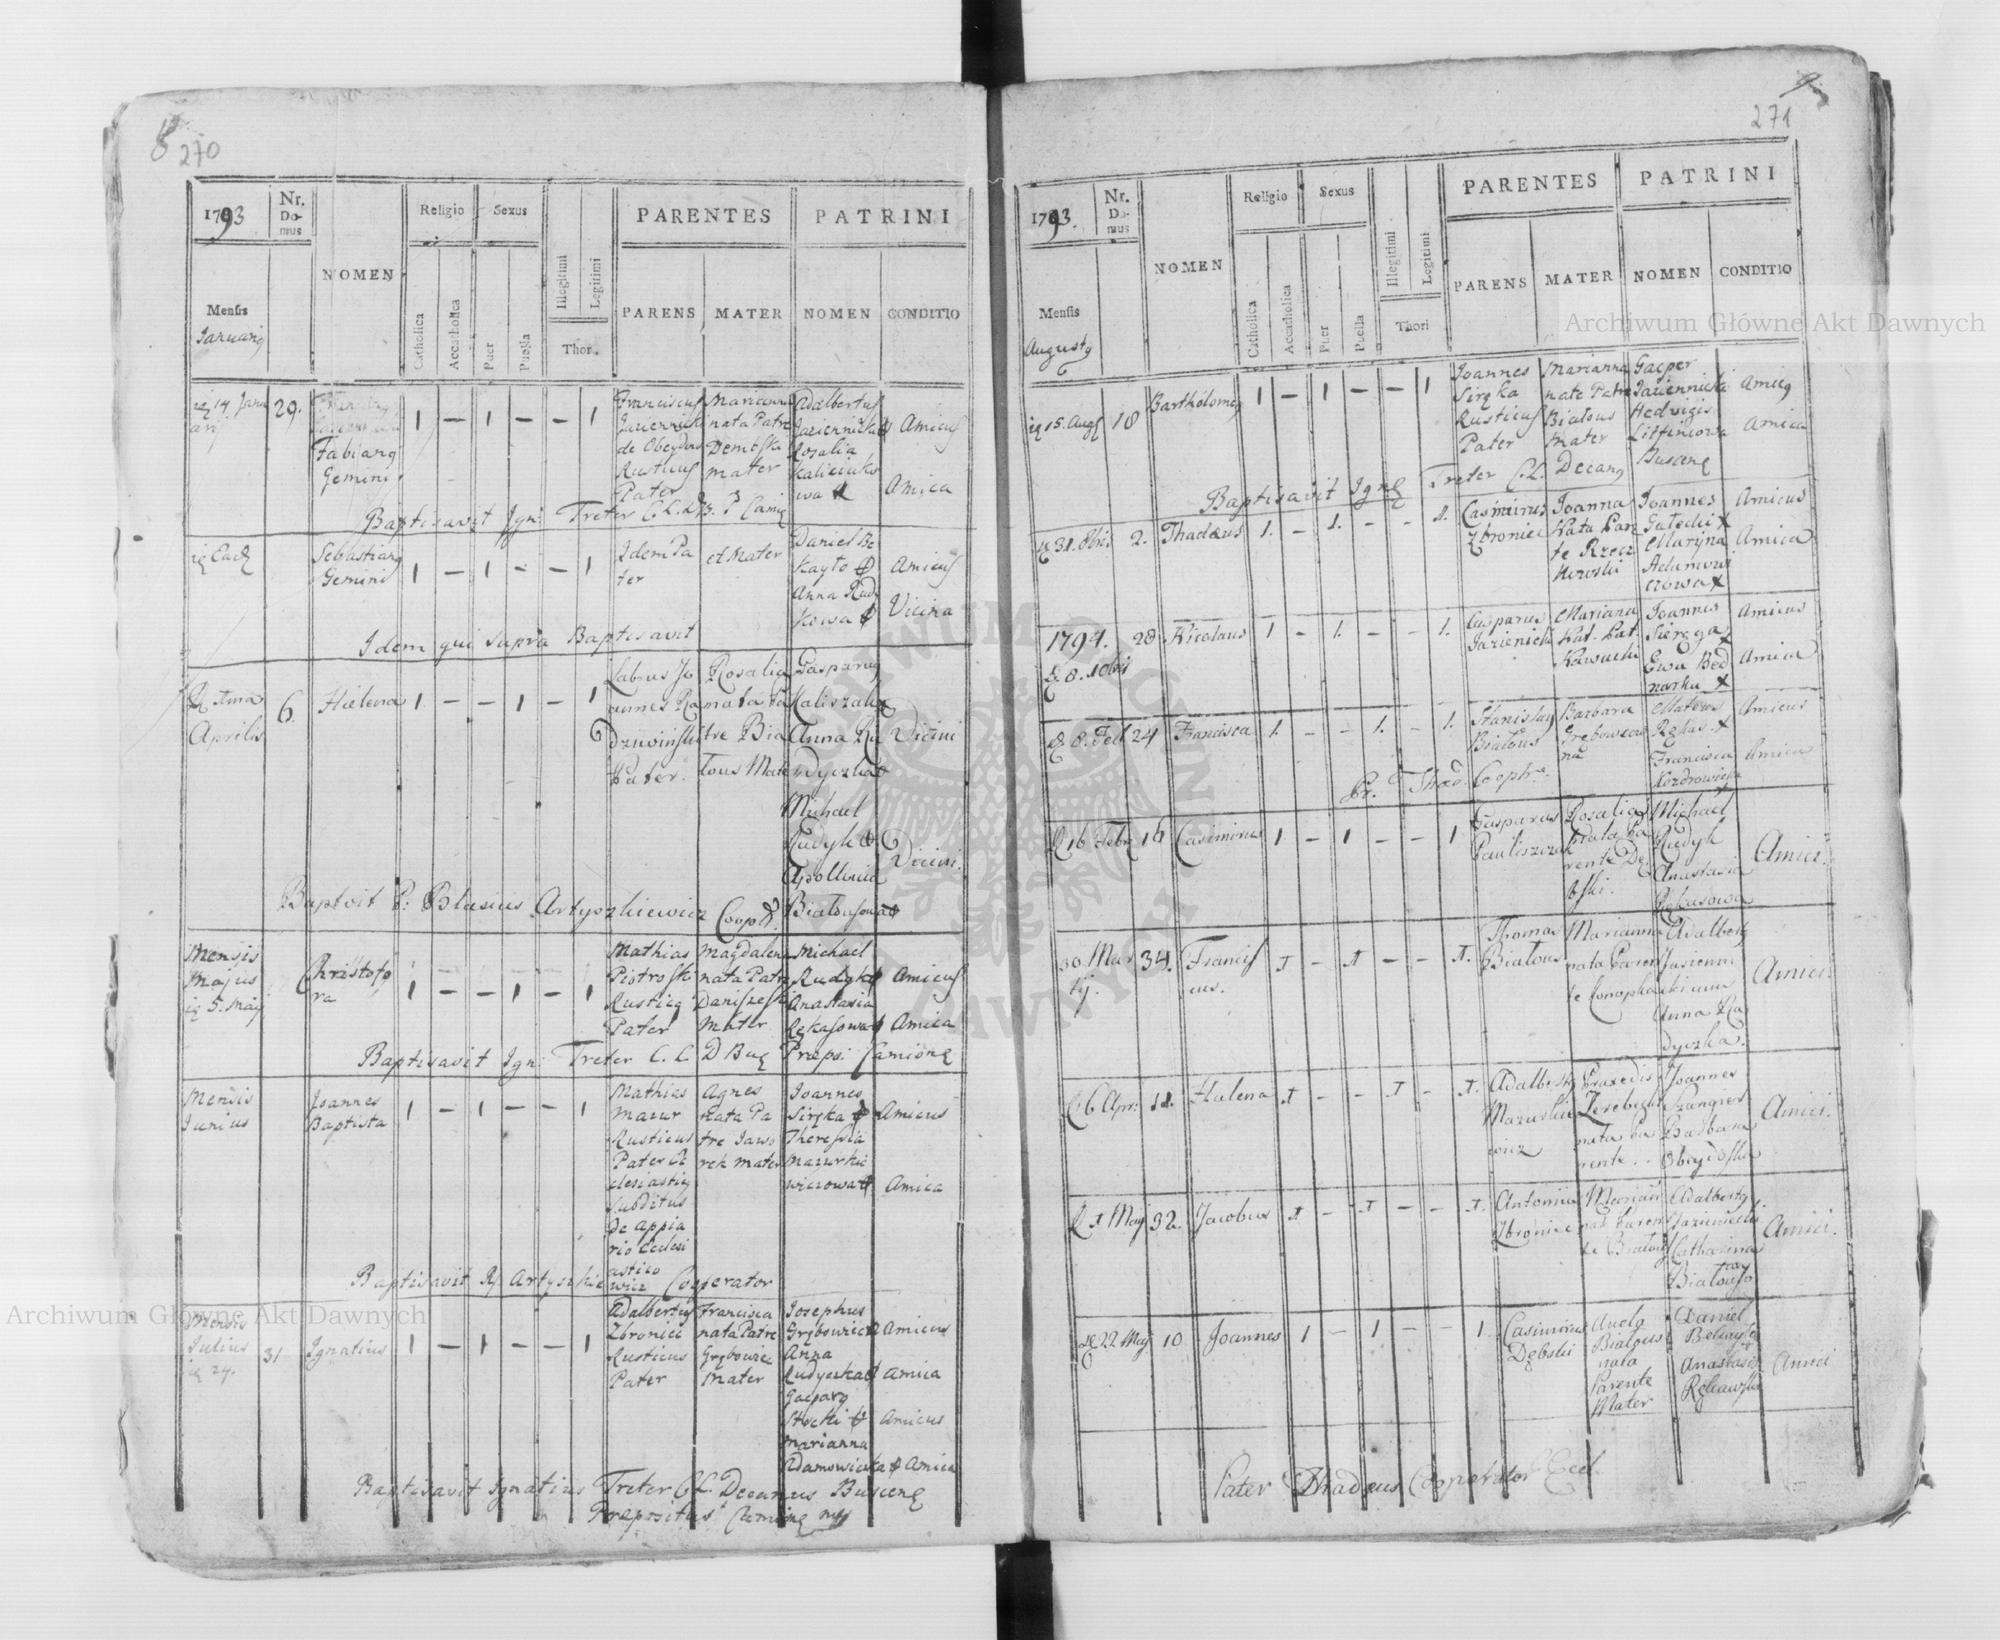 8 270
1793
Nr. Domus
NOMEN
Religio
Sexus
PARENTES
PATRINI
Mensis
Januarij
Catholica
Accatholica
Puer
Puella
Illegitimi
Legitimi
Thori
PARENS
MATER
NOMEN
CONDITIO
14 Janu
arij
29.
Fabianq
Gemini
1 — 1 — — 1
Franciscus
Jazienniski
de Obeydow
Rusticus
Pater
Marianna
nata Patre
Dembska
mater
Adalbertus
Jaziennicki
Rosalia
Kaliciuko
wa
Amicus
Amica
Baptisavit Ign: Treter C.L.
Sebastianq
Gemini
1 — 1 — — 1
Idem Pa
ter
et Mater
Daniel Be
kayto
Anna Rud
kowa
Amicus
Vicina
Idem qui supra Baptisavit
Aprilis
6.
Helena
1 — — 1 — 1
Labrus Jo
annes
Pater.
Rosalia
nata Pa
tre Bia
lous Mate
Gasparus
Kaliszak
Anna Ru
dyczka
Vicini
Michael
Rudyk
Apollinia
Bialousowa
Vicini
Baptvit P: Blasius Artyszkiewicz Coop
Mensis
Majus
5. Maij
Christofo
ra
1 — — 1 — 1
Mathias
Piotrosk
Rusticq
Pater
Magdalena
nata Patre
Mater
Michael
Rudyk
Anastasia
Rekasowa
Amicus
Amica
Baptisavit Ign: Treter C. L. D Bus Præpsi Camione
Mensis
Junius
Joannes
Baptista
1 — 1 — — 1
Mathias
Mazur
Rusticus
Pater Ec
clesiastiq
Subditus
De Appia
rio Eclesi
astico
Agnes
Nata Pa
tre Jawo
rek mater
Joannes
Siręka
Theressia
Mazurkie
wiczowa
Amicus
Amica
Baptisavit Rp Artyszkie
wicz Cooperator
Mensis
Julius
24.
31
Ignatius
1 — 1 — — 1
Adalbertus
Zbroniec
Rusticus
Pater
Francisca
nata Patre
Grębowiec
Mater
Josephus
Grębowiec
Anna
Rudyczka
Gasparq
Stocki
Marianna
Adamowiczka
Amicus
Amica
Amicus
Amica
Baptisavit Ignatius Treter C.L. Decanus Buscens
Præpositus Camione
271
1793.
Nr. Domus
NOMEN
Religio
Sexus
PARENTES
PATRINI
Mensis
Augusty
Catholica
Accatholica
Puer
Puella
Illegitimi
Legitimi
Thori
PARENS
MATER
NOMEN
CONDITIO
15. Aug
18
Bartholomeq
1 — 1 — — 1
Joannes
Siręka
Rusticus
Pater
Marianna
nata Patre
Bialous
Mater
Gasper
Jaziennicki
Hedwigis
Litfiniowa
Amicq
Amica
Baptisavit Igne Treter C.L. Decanq Buscene
31. 8bris
2.
Thadæus
1. — 1. — — 1.
Casimirus
Zbroniec
Joanna
Nata Par
te
Joannes
Gatecki
Maryna
Adamowi
czowa
Amicus
Amica
1794.
8. 10bis
28
Nicolaus
1 — 1. — — 1.
Casparus
Jazienicki
Mariana
Nat. Pat.
Kowacki
Joannes
Sieręga
Ewa Bed
narka
Amicus
Amica
8. Feb
24
Francisca
1. — — 1. — 1.
Stanislaq
Bialous
Barbara
Grębowcow
na
Mateus
Rękas
Francisca
Amicus
Amica
Pr. Thad. Cooptr.
16 Febr
18
Casimirus
1 — 1 — — 1
Gasparus
Pauliszczak
Rosalia
Nata Pa
rente De
bski.
Michael
Rudyk
Anastasia
Rękasowa
Amici.
30. Mar
tij.
34.
Francis
cus.
1 — 1 — — 1.
Thomas
Bialous
Marianna
nata Paren
te Konopka
Adalbertq
Jasienni
Anna Ru
dyczka.
Amici.
6 Apr:
11.
Halena
1 — — 1 — 1.
Adalbertq
Mazurkie
wicz
Praxedis
Zerebecki
nata Pa
rente
Joannes
Szangier
Barbara
Obeydoska
Amici.
1 May
32.
Jacobus
1 — 1 — — 1.
Antonius
Zbroniec
Marjan
nat Paren
te Bialous
Adalbertq
Jazienicki
Catharina
Bialouso
wa
Amici.
22 May
10
Joannes
1 — 1 — — 1
Casimirus
Dębski
Bialous
nata
Parente
Mater
Daniel
Bekayto
Anastasia
Rękawska
Amici
Pater Thadæus Cooperator Eccl.
Archiwum Główne Akt Dawnych
Archiwum Główne Akt Dawnych